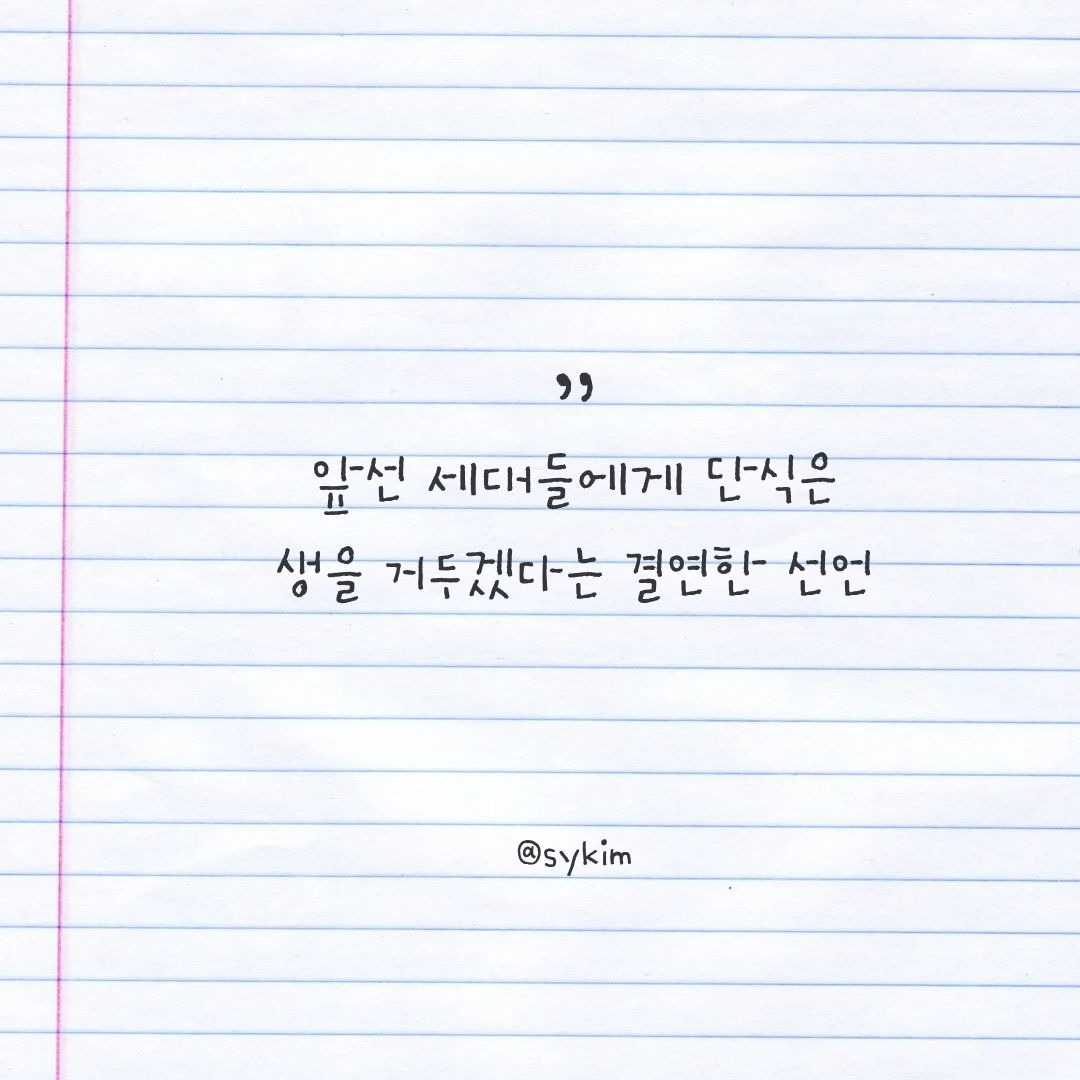 ”
앞선 세대들에게 단식은
생을 거두겠다는 결연한 선언
@sykim